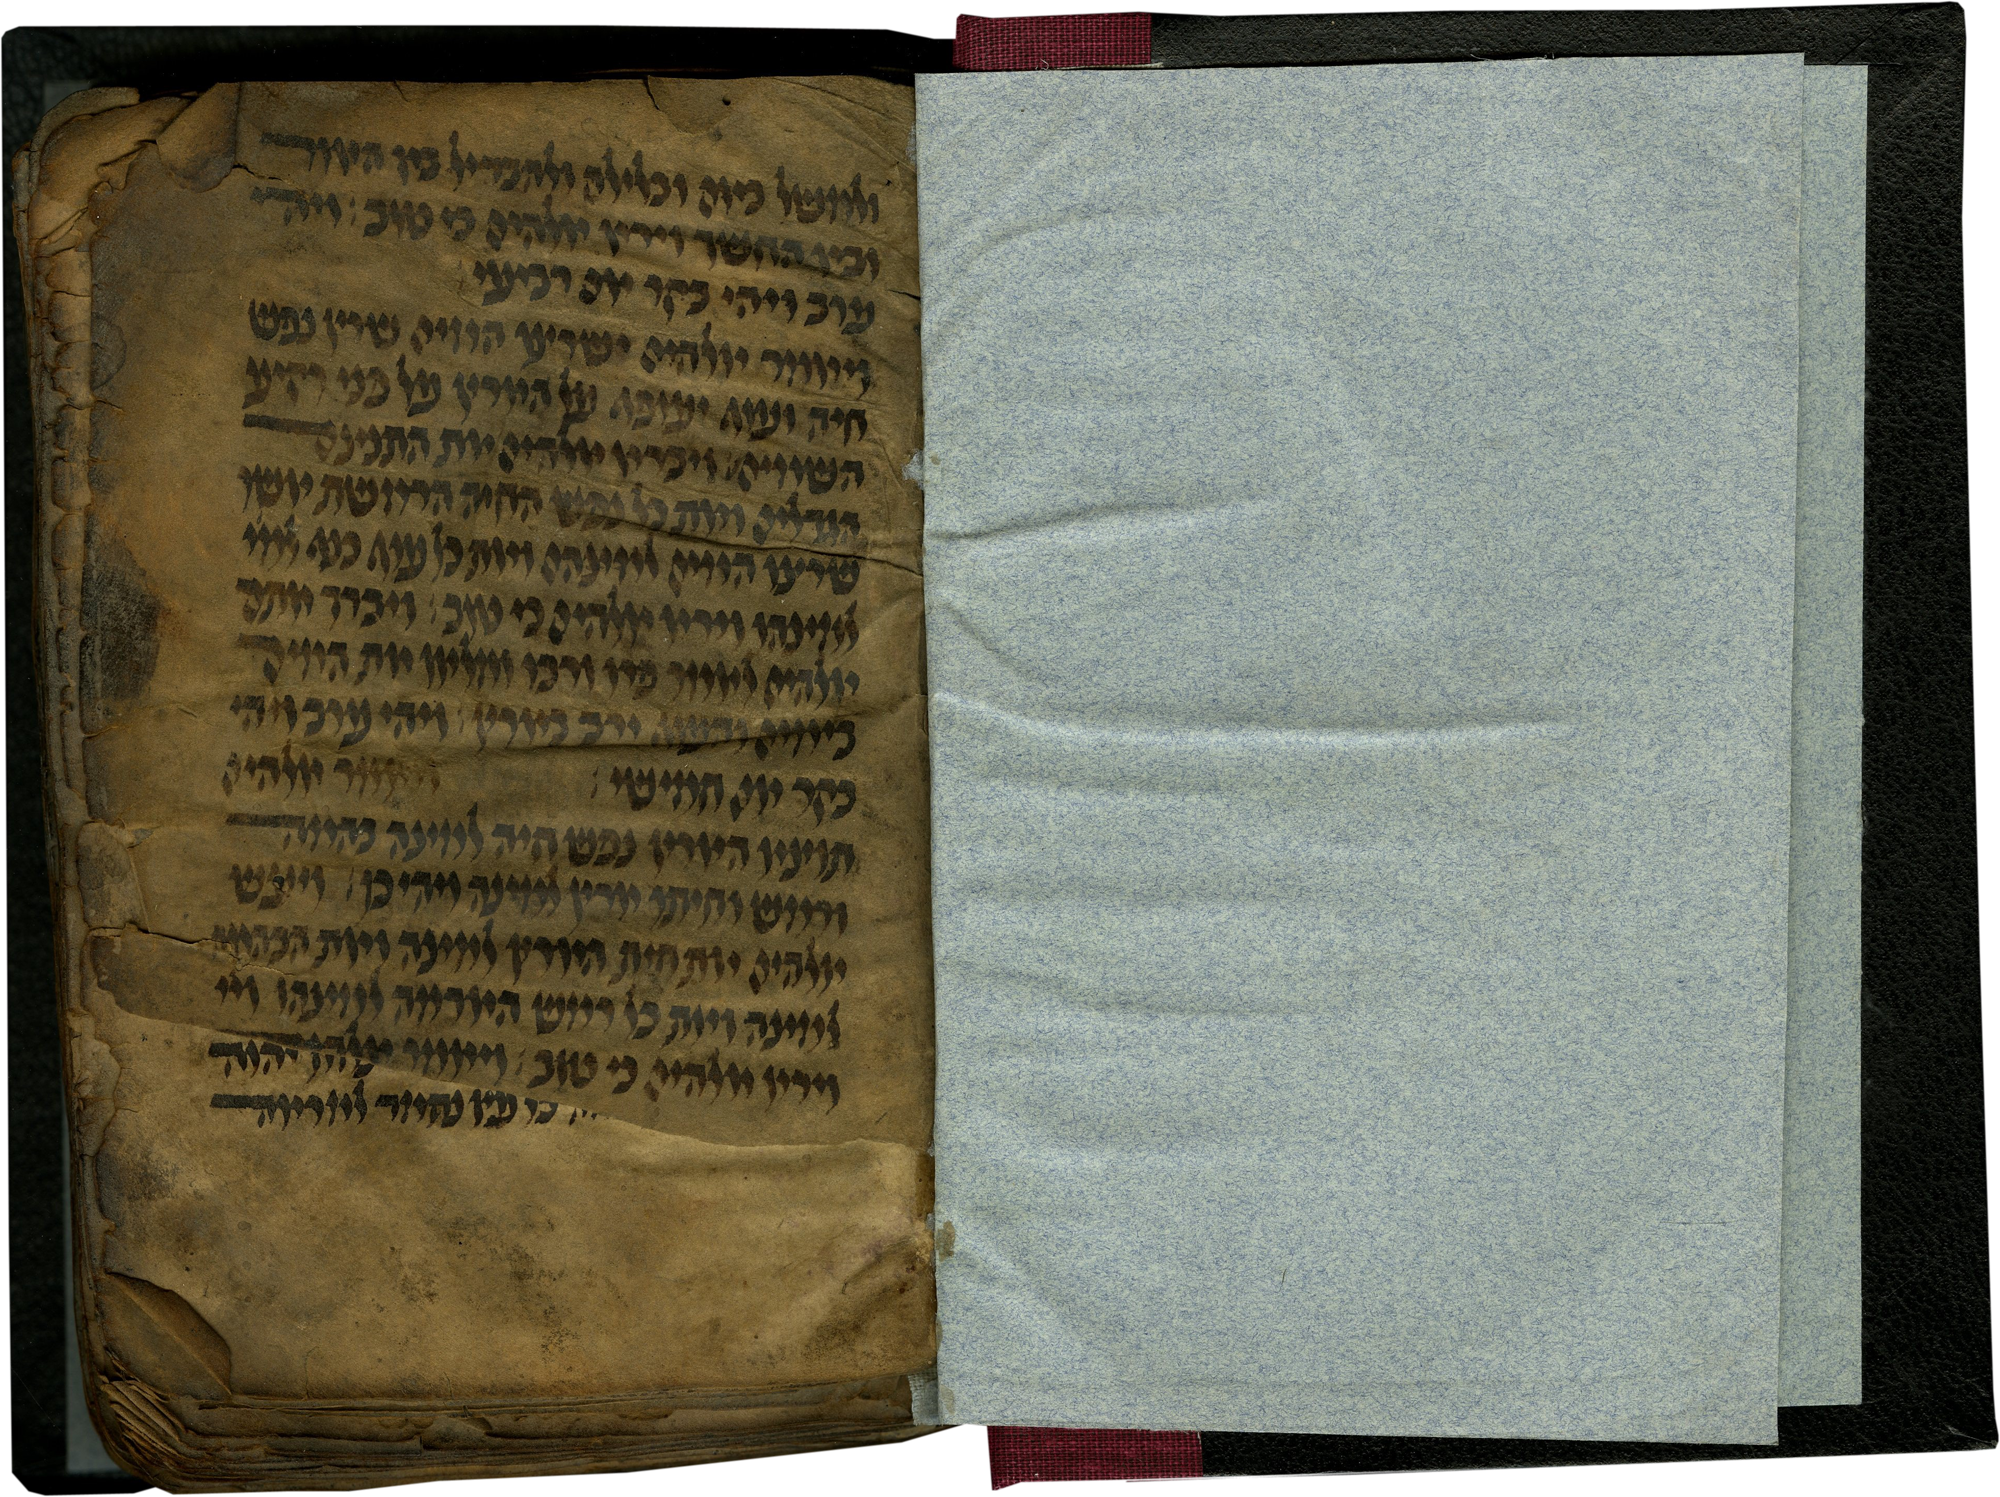 ולמשל ביום ובלילה ולהבדיל בין האור
ובין החשך וירא אלהים כי טוב : ויהי
ערב ויהי בקר יום רביעי
ויאמר אלהים ישרצו המים שרץ נפש
חיה ועוף יעופף על הארץ על פני רקיע
השמים : ויברא אלהים את התנינם
הגדלים ואת כל נפש החיה הרומשת אשר
שרצו המים למינהם ואת כל עוף כנף למי
למינהו וירא אלהים כי טוב : ויברך אתם
אלהים לאמר פרו ורבו ומלאו את המים
בימים והעוף ירב בארץ : ויהי ערב ויהי
בקר יום חמישי : ויאמר אלהים
תוצא הארץ נפש חיה למינה בהמה
ורמש וחיתו ארץ למינה ויהי כן : ויעש
אלהים את חית הארץ למינה ואת הבהמה
למינה ואת כל רמש האדמה למינהו וי
וירא אלהים כי טוב : ויאמר יהוה
כי